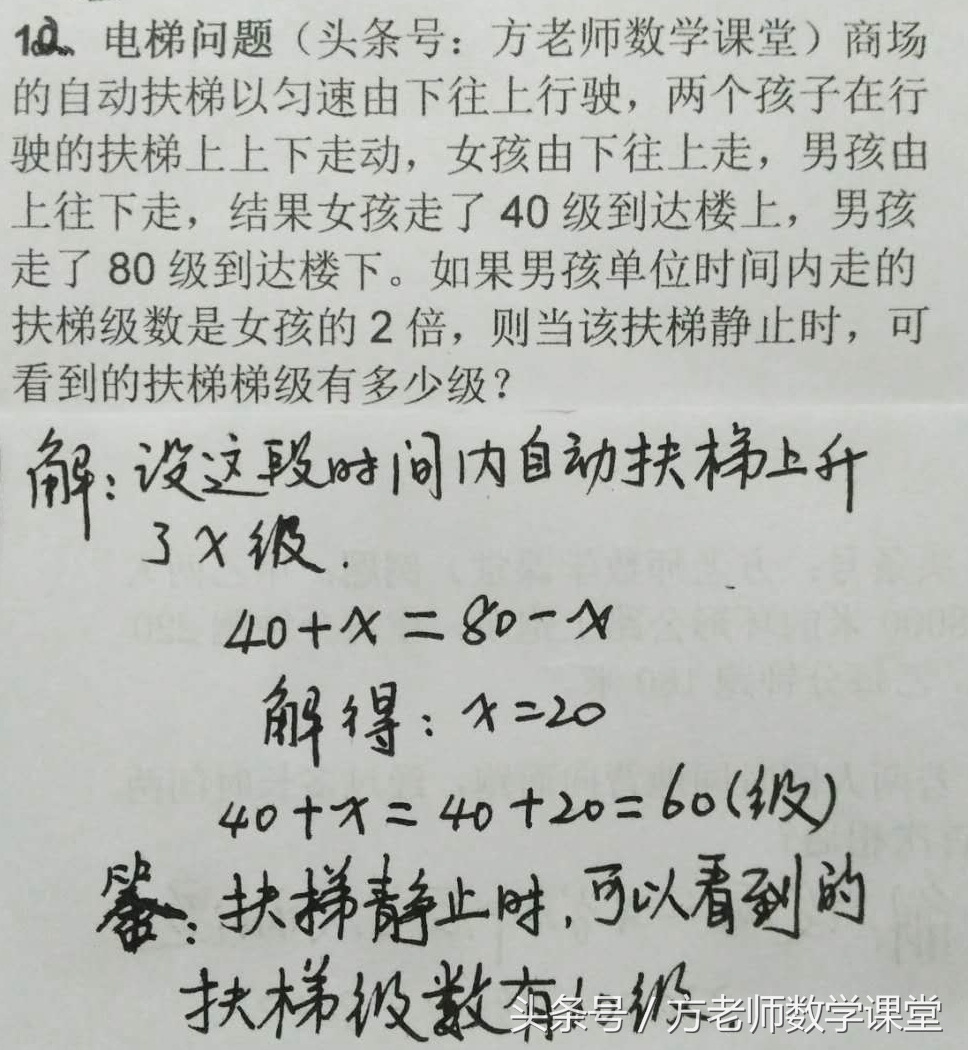 10、电梯问题（头条号：方老师数学课堂）商场
的自动扶梯以匀速由下往上行驶，两个孩子在行
驶的扶梯上上下走动，女孩由下往上走，男孩由
上往下走，结果女孩走了 40 级到达楼上，男孩
走了 80 级到达楼下。如果男孩单位时间内走的
扶梯级数是女孩的 2 倍，则当该扶梯静止时，可
看到的扶梯梯级有多少级？
解：设这段时间内自动扶梯上升
了x级.
40+x=80-x
解得：x=20
40+x=40+20=60(级)
答：扶梯静止时,可以看到的
扶梯级数有 级
头条号 / 方老师数学课堂